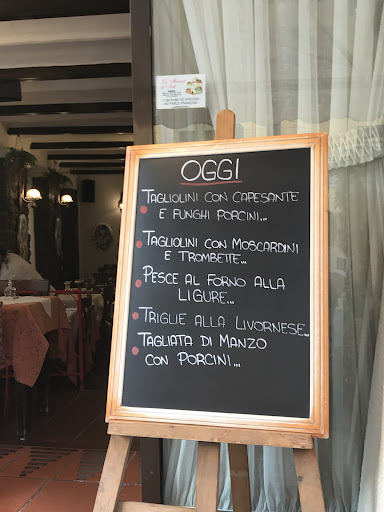 OGGI
TAGLIOLINI CON CAPESANTE
E FUNGHI PORCINI...
TAGLIOLINI CON MOSCARDINI
E TROMBETTE...
PESCE AL FORNO ALLA
LIGURE...
TRIGLIE ALLA LIVORNESE..
TAGLIATA DI MANZO
CON PORCINI...